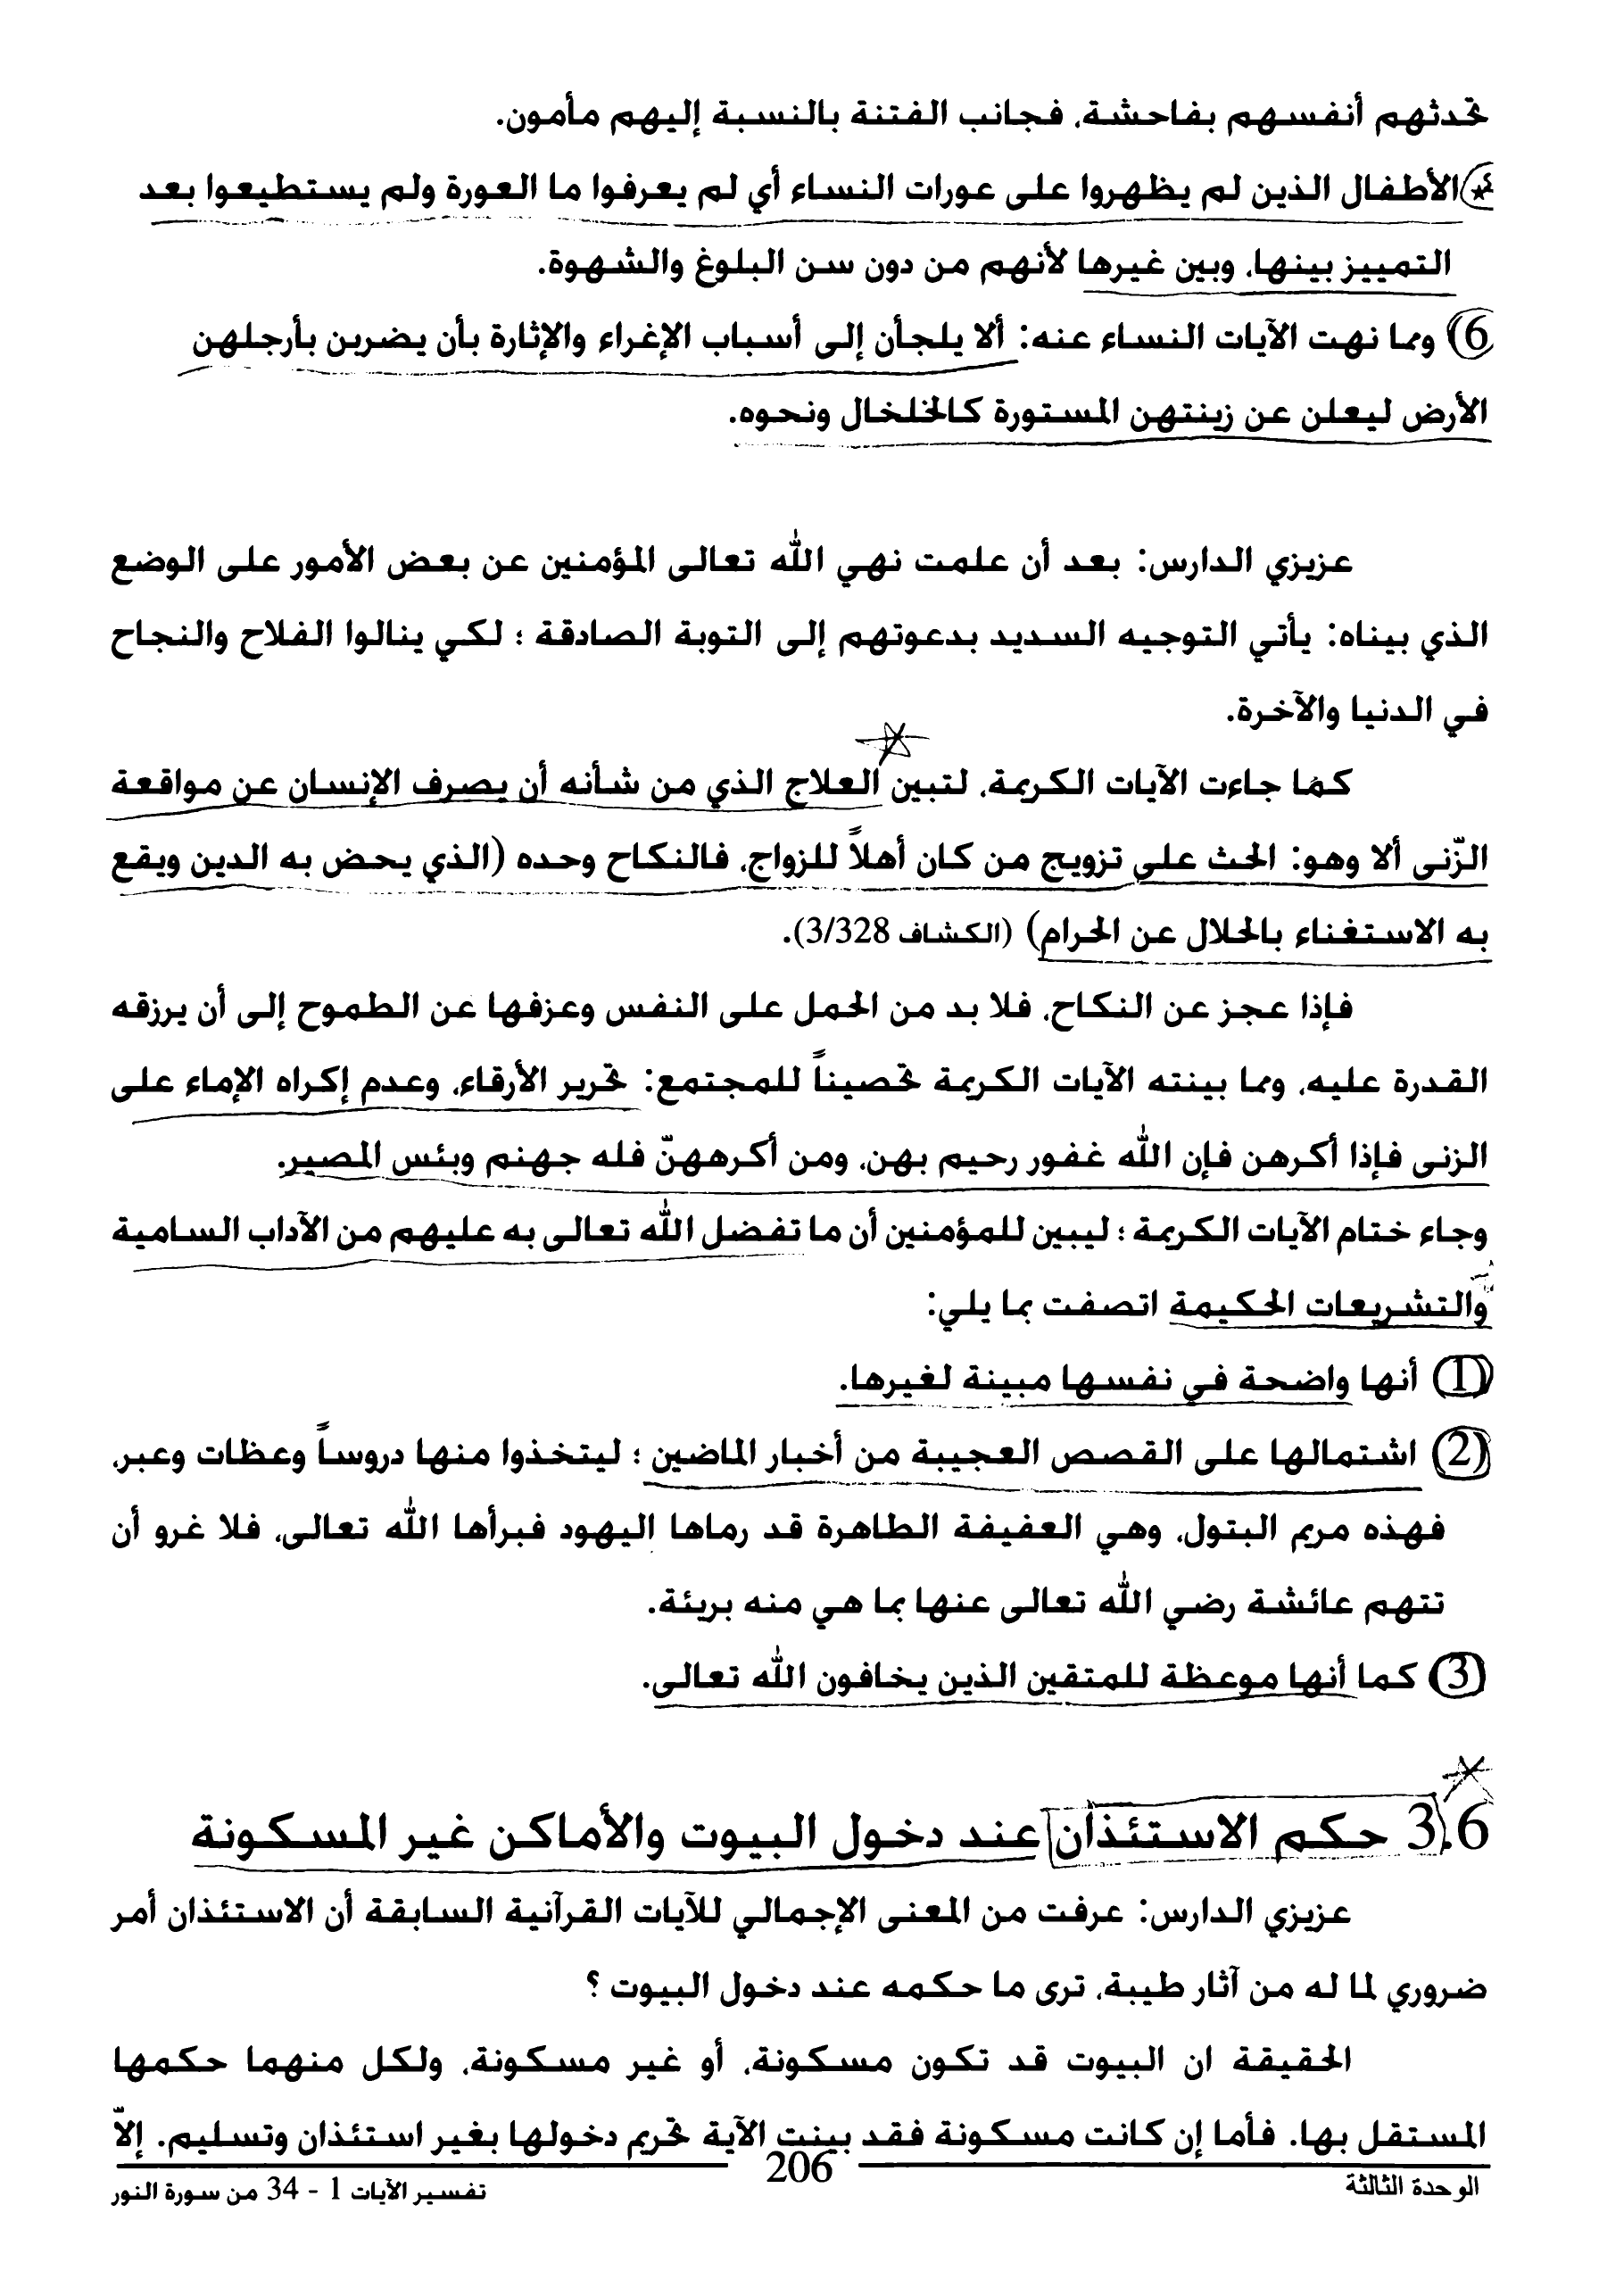 تحدثهم أنفسهم بفاحشة، فجانب الفتنة بالنسبة إليهم مأمون.
الأطفال الذين لم يظهروا على عورات النساء أي لم يعرفوا ما العورة ولم يستطيعوا بعد
التمييز بينها، وبين غيرها لأنهم من دون سن البلوغ والشهوة.
6) ومما نهت الآيات النساء عنه: ألا يلجأن إلى أسباب الإغراء والإثارة بأن يضربن بأرجلهن
الأرض ليعلن عن زينتهن المستورة كالخلخال ونحوه.
عزيزي الدارس: بعد أن علمت نهي الله تعالى المؤمنين عن بعض الأمور على الوضع
الذي بيناه: يأتي التوجيه السديد بدعوتهم إلى التوبة الصادقة ؛ لكي ينالوا الفلاح والنجاح
في الدنيا والآخرة.
كما جاءت الآيات الكريمة، لتبين العلاج الذي من شأنه أن يصرف الإنسان عن مواقعة
الزّنى ألا وهو: الحث على تزويج من كان أهلاً للزواج، فالنكاح وحده (الذي يحض به الدين ويقع
به الاستغناء بالحلال عن الحرام) (الكشاف 3/328).
فإذا عجز عن النكاح، فلا بد من الحمل على النفس وعزفها عن الطموح إلى أن يرزقه
القدرة عليه، ومما بينته الآيات الكريمة تحصيناً للمجتمع: تحرير الأرقاء، وعدم إكراه الإماء على
الزنى فإذا أكرهن فإن الله غفور رحيم بهن، ومن أكرههنّ فله جهنم وبئس المصير.
وجاء ختام الآيات الكريمة ؛ ليبين للمؤمنين أن ما تفضل الله تعالى به عليهم من الآداب السامية
والتشريعات الحكيمة اتصفت بما يلي:
1) أنها واضحة في نفسها مبينة لغيرها.
2) اشتمالها على القصص العجيبة من أخبار الماضين ؛ ليتخذوا منها دروساً وعظات وعبر،
فهذه مريم البتول، وهي العفيفة الطاهرة قد رماها اليهود فبرأها الله تعالى، فلا غرو أن
تتهم عائشة رضي الله تعالى عنها بما هي منه بريئة.
3) كما أنها موعظة للمتقين الذين يخافون الله تعالى.
3.6 حكم الاستئذان عند دخول البيوت والأماكن غير المسكونة
عزيزي الدارس: عرفت من المعنى الإجمالي للآيات القرآنية السابقة أن الاستئذان أمر
ضروري لما له من آثار طيبة، ترى ما حكمه عند دخول البيوت ؟
الحقيقة ان البيوت قد تكون مسكونة، أو غير مسكونة، ولكل منهما حكمها
المستقل بها. فأما إن كانت مسكونة فقد بينت الآية تحريم دخولها بغير استئذان وتسليم. إلاّ
الوحدة الثالثة 206 تفسير الآيات 1 - 34 من سورة النور